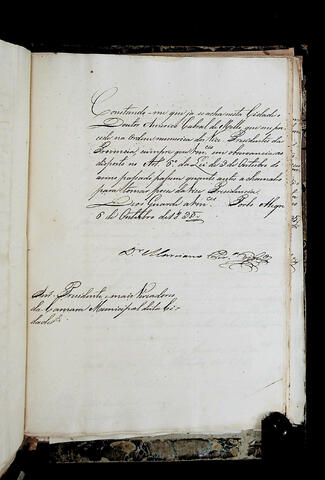 Constando-me que ja se acha nesta Cidade o
Doutor Americo Cabral de Mello, que me pre-
cede na ordem numerica de Vice Presidentes da
Provincia, cumpre que Vm.ces em observancia do
disposto no Art. 5º da Lei de 3 de Outubro do
anno passado, quanto antes o chamem
para tomar posse da Vice Presidencia.
Deos Guarde a Vm.ces Porto Alegre
5 de Outubro de 18
Dr Marianno
Snr.s Presidente, e mais Vereadores
da Camara Municipal desta Ci-
dade